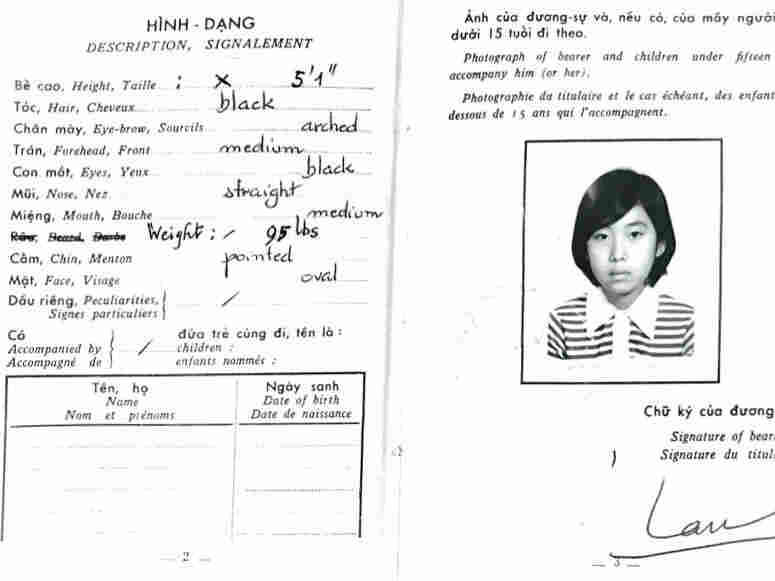 HÌNH - DẠNG
DESCRIPTION, SIGNALEMENT
Bề cao, Height, Taille : x 5'1"
Tóc, Hair, Cheveux black
Chân mày, Eye-brow, Sourcils arched
Trán, Forehead, Front medium
Con mắt, Eyes, Yeux black
Mũi, Nose, Nez straight
Miệng, Mouth, Bouche medium
Râu, Beard, Barbe Weight : / 95 lbs
Cằm, Chin, Menton pointed
Mặt, Face, Visage oval
Dấu riêng, Peculiarities, /
Signes particuliers
Có đứa trẻ cùng đi, tên là :
Accompanied by / children :
Accompagné de enfants nommés :
Tên, họ Ngày sanh
Name Date of birth
Nom et prénoms Date de naissance
— 2 —
Ảnh của đương-sự và, nếu có, của mấy người
dưới 15 tuổi đi theo.
Photograph of bearer and children under fifteen
accompany him (or her).
Photographie du titulaire et le cas échéant, des enfant
dessous de 15 ans qui l'accompagnent.
Chữ ký của đương
Signature of bear
Signature du titul
Lan
— 3 —